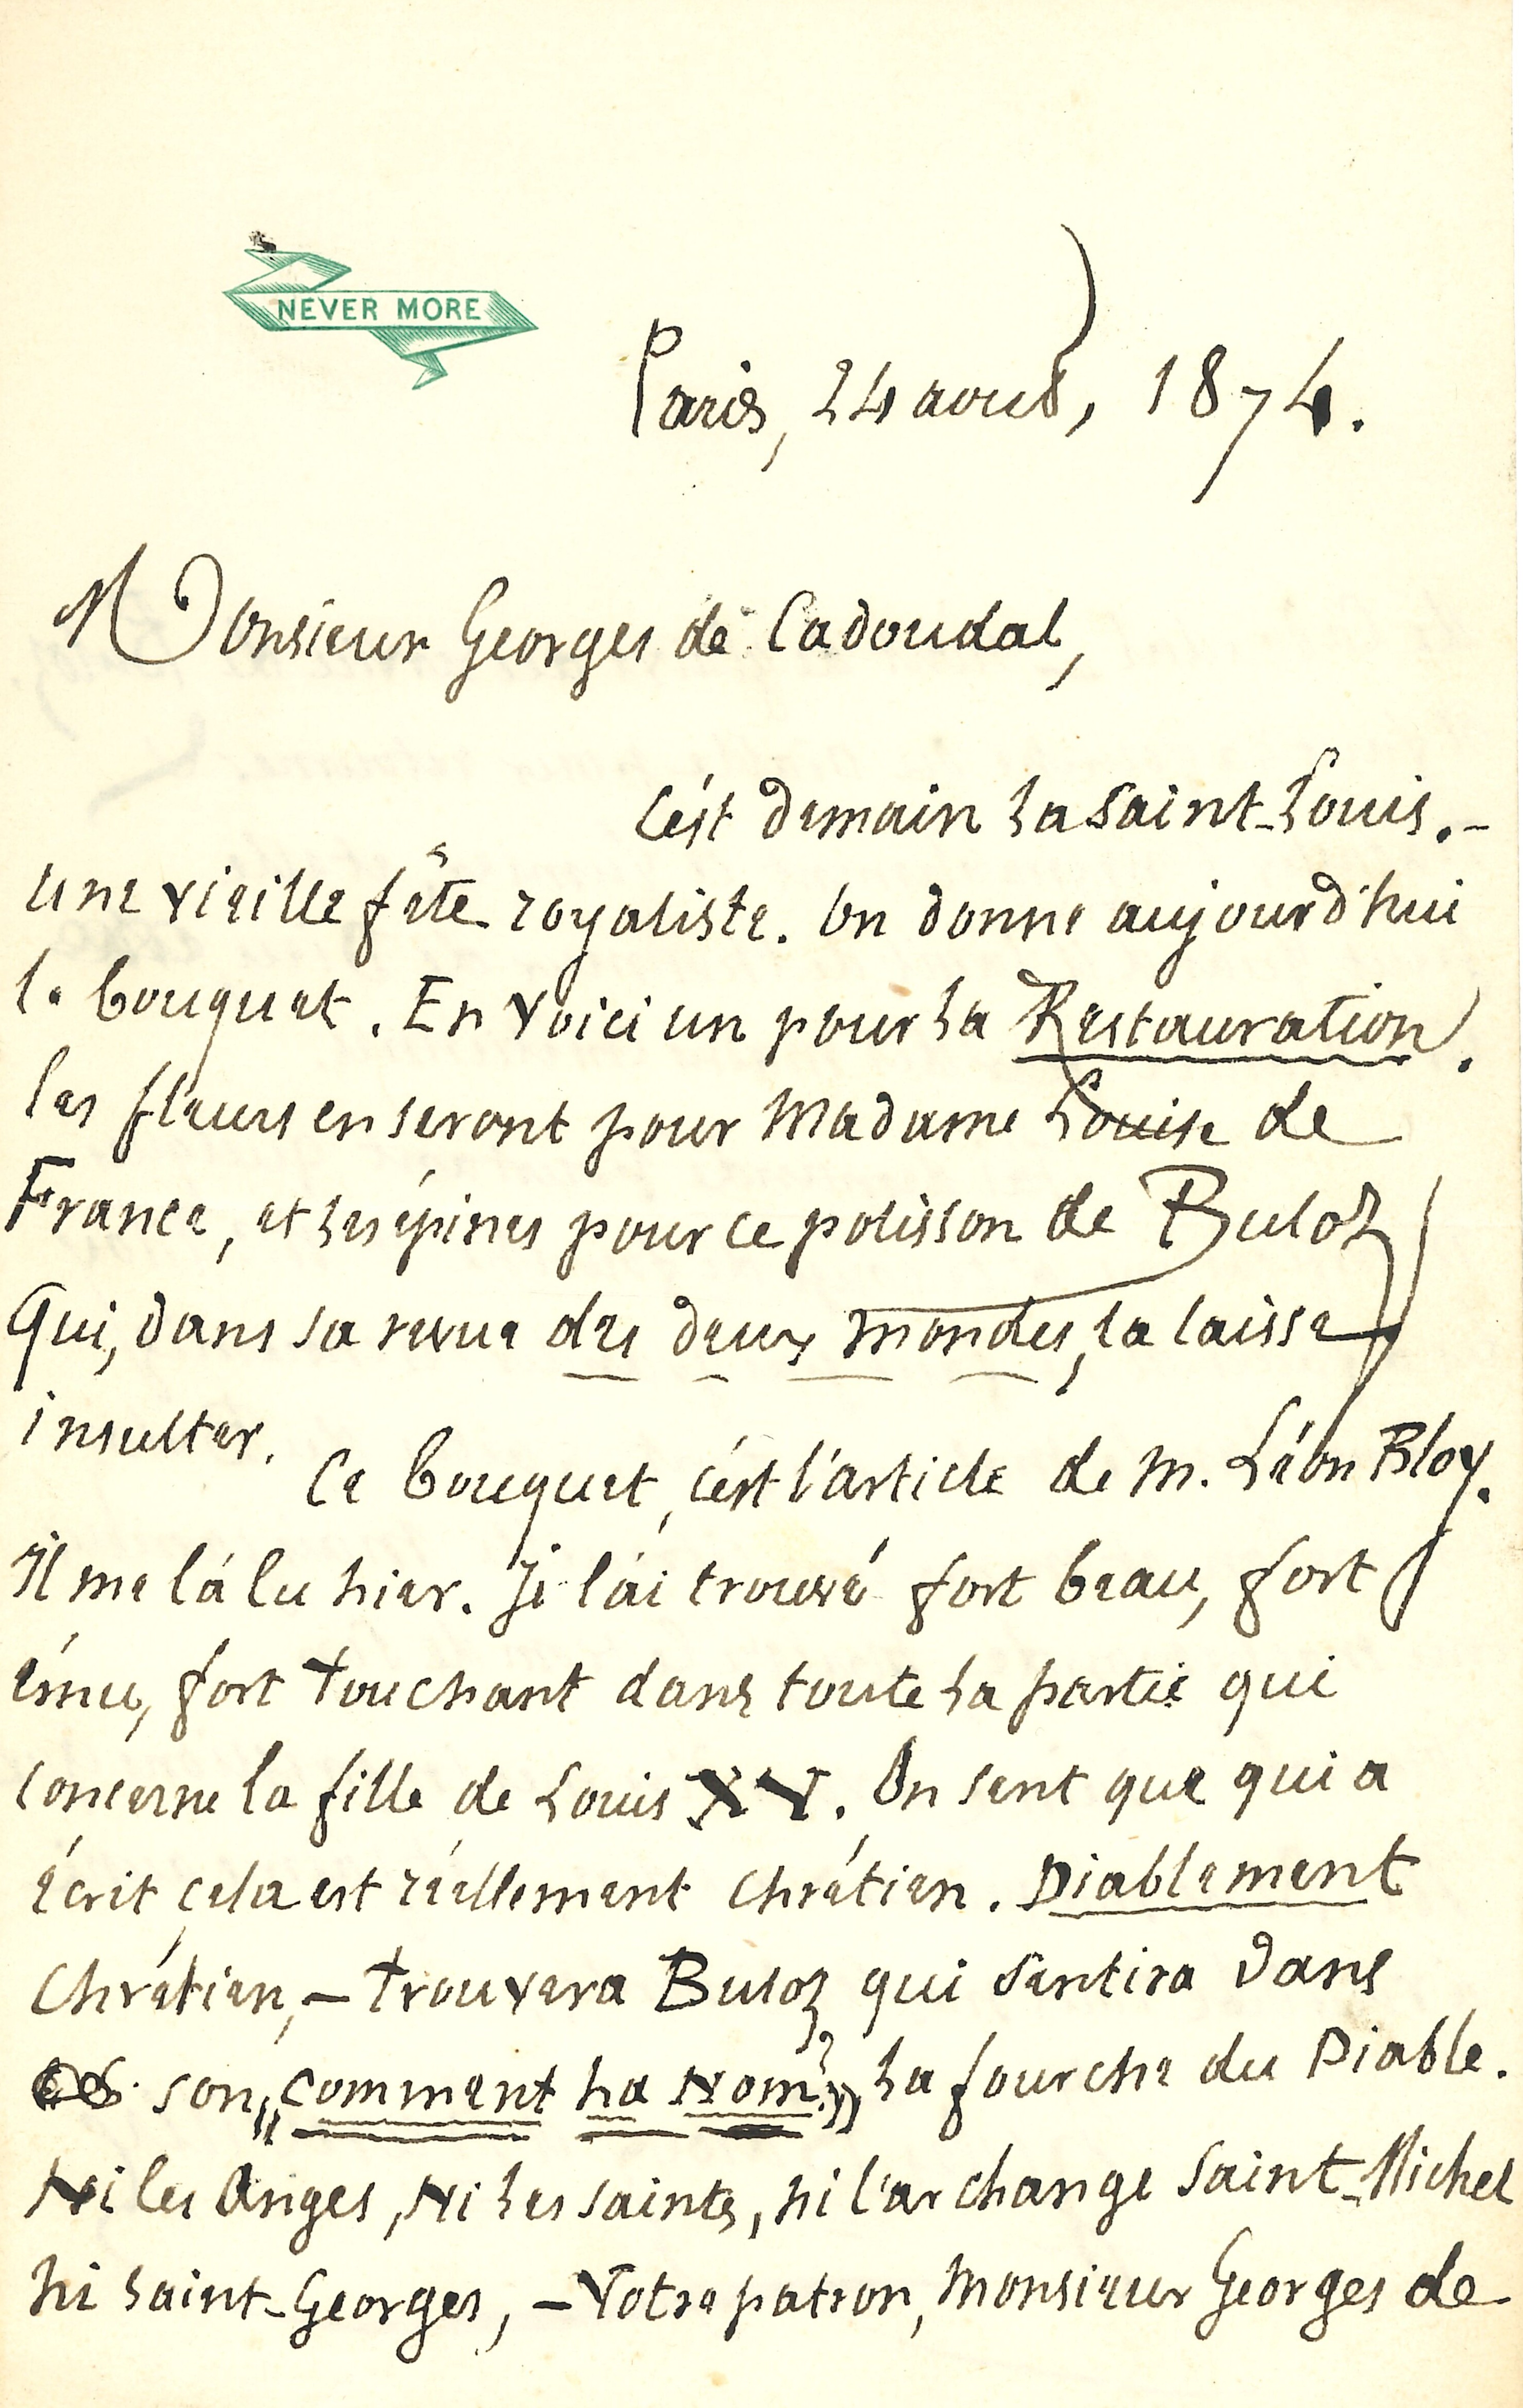 NEVER MORE
Paris, 24 aout, 1874.
Monsieur Georges de Cadoudal,
C'est demain la Saint-Louis. –
Une vieille fête royaliste. On donne aujourd'hui
le bouquet. En voici un pour la Restauration.
les fleurs en seront pour Madame Louise de
France, et les épines pour ce polisson de Buloz
qui, dans sa revue des deux mondes, la laisse
insulter.
Ce bouquet, c'est l'article de M. Léon Bloy.
Il me l'a lu hier. Je l'ai trouvé fort beau, fort
ému, fort touchant dans toute la partie qui
concerne la fille de Louis XV. On sent que qui a
écrit cela est réellement chrétien. Diablement
Chrétien, – trouvera Buloz qui sentira dans
son "comment ha Nom?" la fourche du Diable.
Ni les Anges, Ni les saints, ni l'archange Saint-Michel
ni Saint-Georges, – Votre patron, Monsieur Georges de